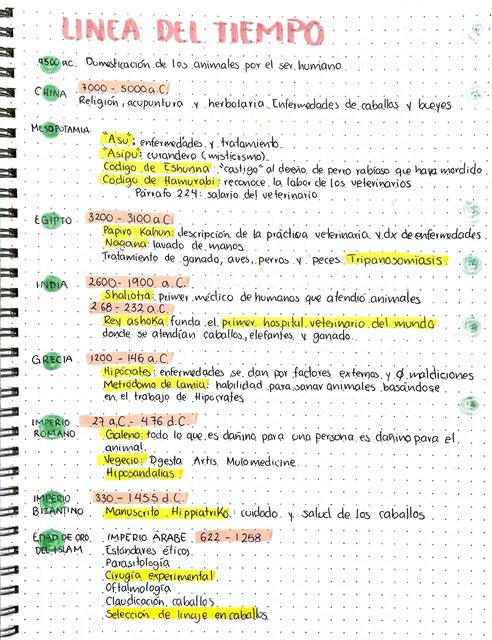 LINEA DEL TIEMPO
9500 a.c. Domesticación de los animales por el ser humano.
CHINA 7000 - 5000 a.C.
Religión, acupuntura y herbolaria. Enfermedades de caballos y bueyes
MESOPOTAMIA
"Asu": enfermedades y tratamiento.
"Asipu": curandero (misticismo).
Código de Eshunna: "castigo" al dueño de perro rabioso que haya mordido.
Código de Hamurabi: reconoce la labor de los veterinarios
Párrafo 224: salario del veterinario
EGIPTO 3200 - 3100 a.C.
Papiro Kahun: descripción de la práctica veterinaria y dx de enfermedades.
Nagana: lavado de manos.
Tratamiento de ganado, aves, perros y peces. Tripanosomiasis.
INDIA 2600 - 1900 a.C.
Shaliotra: primer médico de humanos que atendió animales
268 - 232 a.C.
Rey ashoka funda el primer hospital veterinario del mundo
donde se atendían caballos, elefantes y ganado.
GRECIA 1200 - 146 a.C.
Hipócrates: enfermedades se dan por factores externos y Ø maldiciones
Metródomo de Lamia: habilidad para sanar animales basándose
en el trabajo de Hipócrates
IMPERIO ROMANO 27 a.C. - 476 d.C.
Galeno: todo lo que es dañino para una persona es dañino para el
animal.
Vegecio: Dgesta Artis Mulomedicine.
Hiposandalias.
IMPERIO BIZANTINO 330 - 1455 d.C.
Manuscrito Hippiatrika: cuidado y salud de los caballos.
EDAD DE ORO DEL ISLAM IMPERIO ÁRABE 622 - 1258
Estándares éticos.
Parasitología
Cirugía experimental
Oftalmología
Claudicación caballos.
Selección de linaje en caballos.